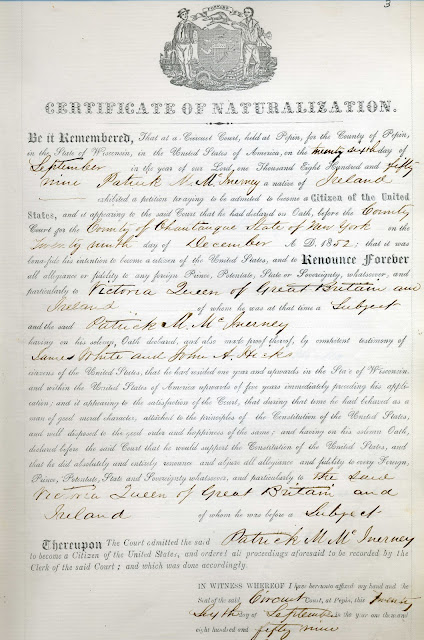 3
CERTIFICATE OF NATURALIZATION.
Be it Remembered, That at a Circuit Court, held at Pepin, for the County of Pepin,
in the State of Wisconsin, in the United States of America, on the twenty sixth day of
September in the year of our Lord, one Thousand Eight Hundred and fifty
nine Patrick M. Mc Inerney a native of Ireland
exhibited a petition praying to be admitted to become a Citizen of the United
States, and it appearing to the said Court that he had declared on Oath, before the County
Court for the County of Chautauque State of New York on the
Twenty ninth day of December A. D. 1852; that it was
bona-fide his intention to become a citizen of the United States, and to Renounce Forever
all allegiance or fidelity to any foreign Prince, Potentate, State or Sovereignty, whatsoever, and
particularly to Victoria Queen of Great Britain and
Ireland of whom he was at that time a Subject
and the said Patrick M. Mc Inerney
having on his solemn Oath declared, and also made proof thereof, by competent testimony of
James White and John A. Hicks
citizens of the United States, that he had resided one year and upwards in the State of Wisconsin,
and within the United States of America upwards of five years immediately preceding his appli-
cation; and it appearing to the satisfaction of the Court, that during that time he had behaved as a
man of good moral character, attached to the principles of the Constitution of the United States,
and well disposed to the good order and happiness of the same; and having on his solemn Oath,
declared before the said Court that he would support the Constitution of the United States, and
that he did absolutely and entirely renounce and abjure all allegiance and fidelity to every Foreign,
Prince, Potentate, State and Sovereignty whatsoever, and particularly to the said
Victoria Queen of Great Britain and
Ireland of whom he was before a Subject
Thereupon The Court admitted the said Patrick M. Mc Inerney
to become a Citizen of the United States, and ordered all proceedings aforesaid to be recorded by the
Clerk of the said Court; and which was done accordingly.
IN WITNESS WHEREOF I have hereunto affixed my hand and the
Seal of the said Circuit Court, at Pepin, this Twenty
Sixth day of September in the year one thousand
eight hundred and fifty nine